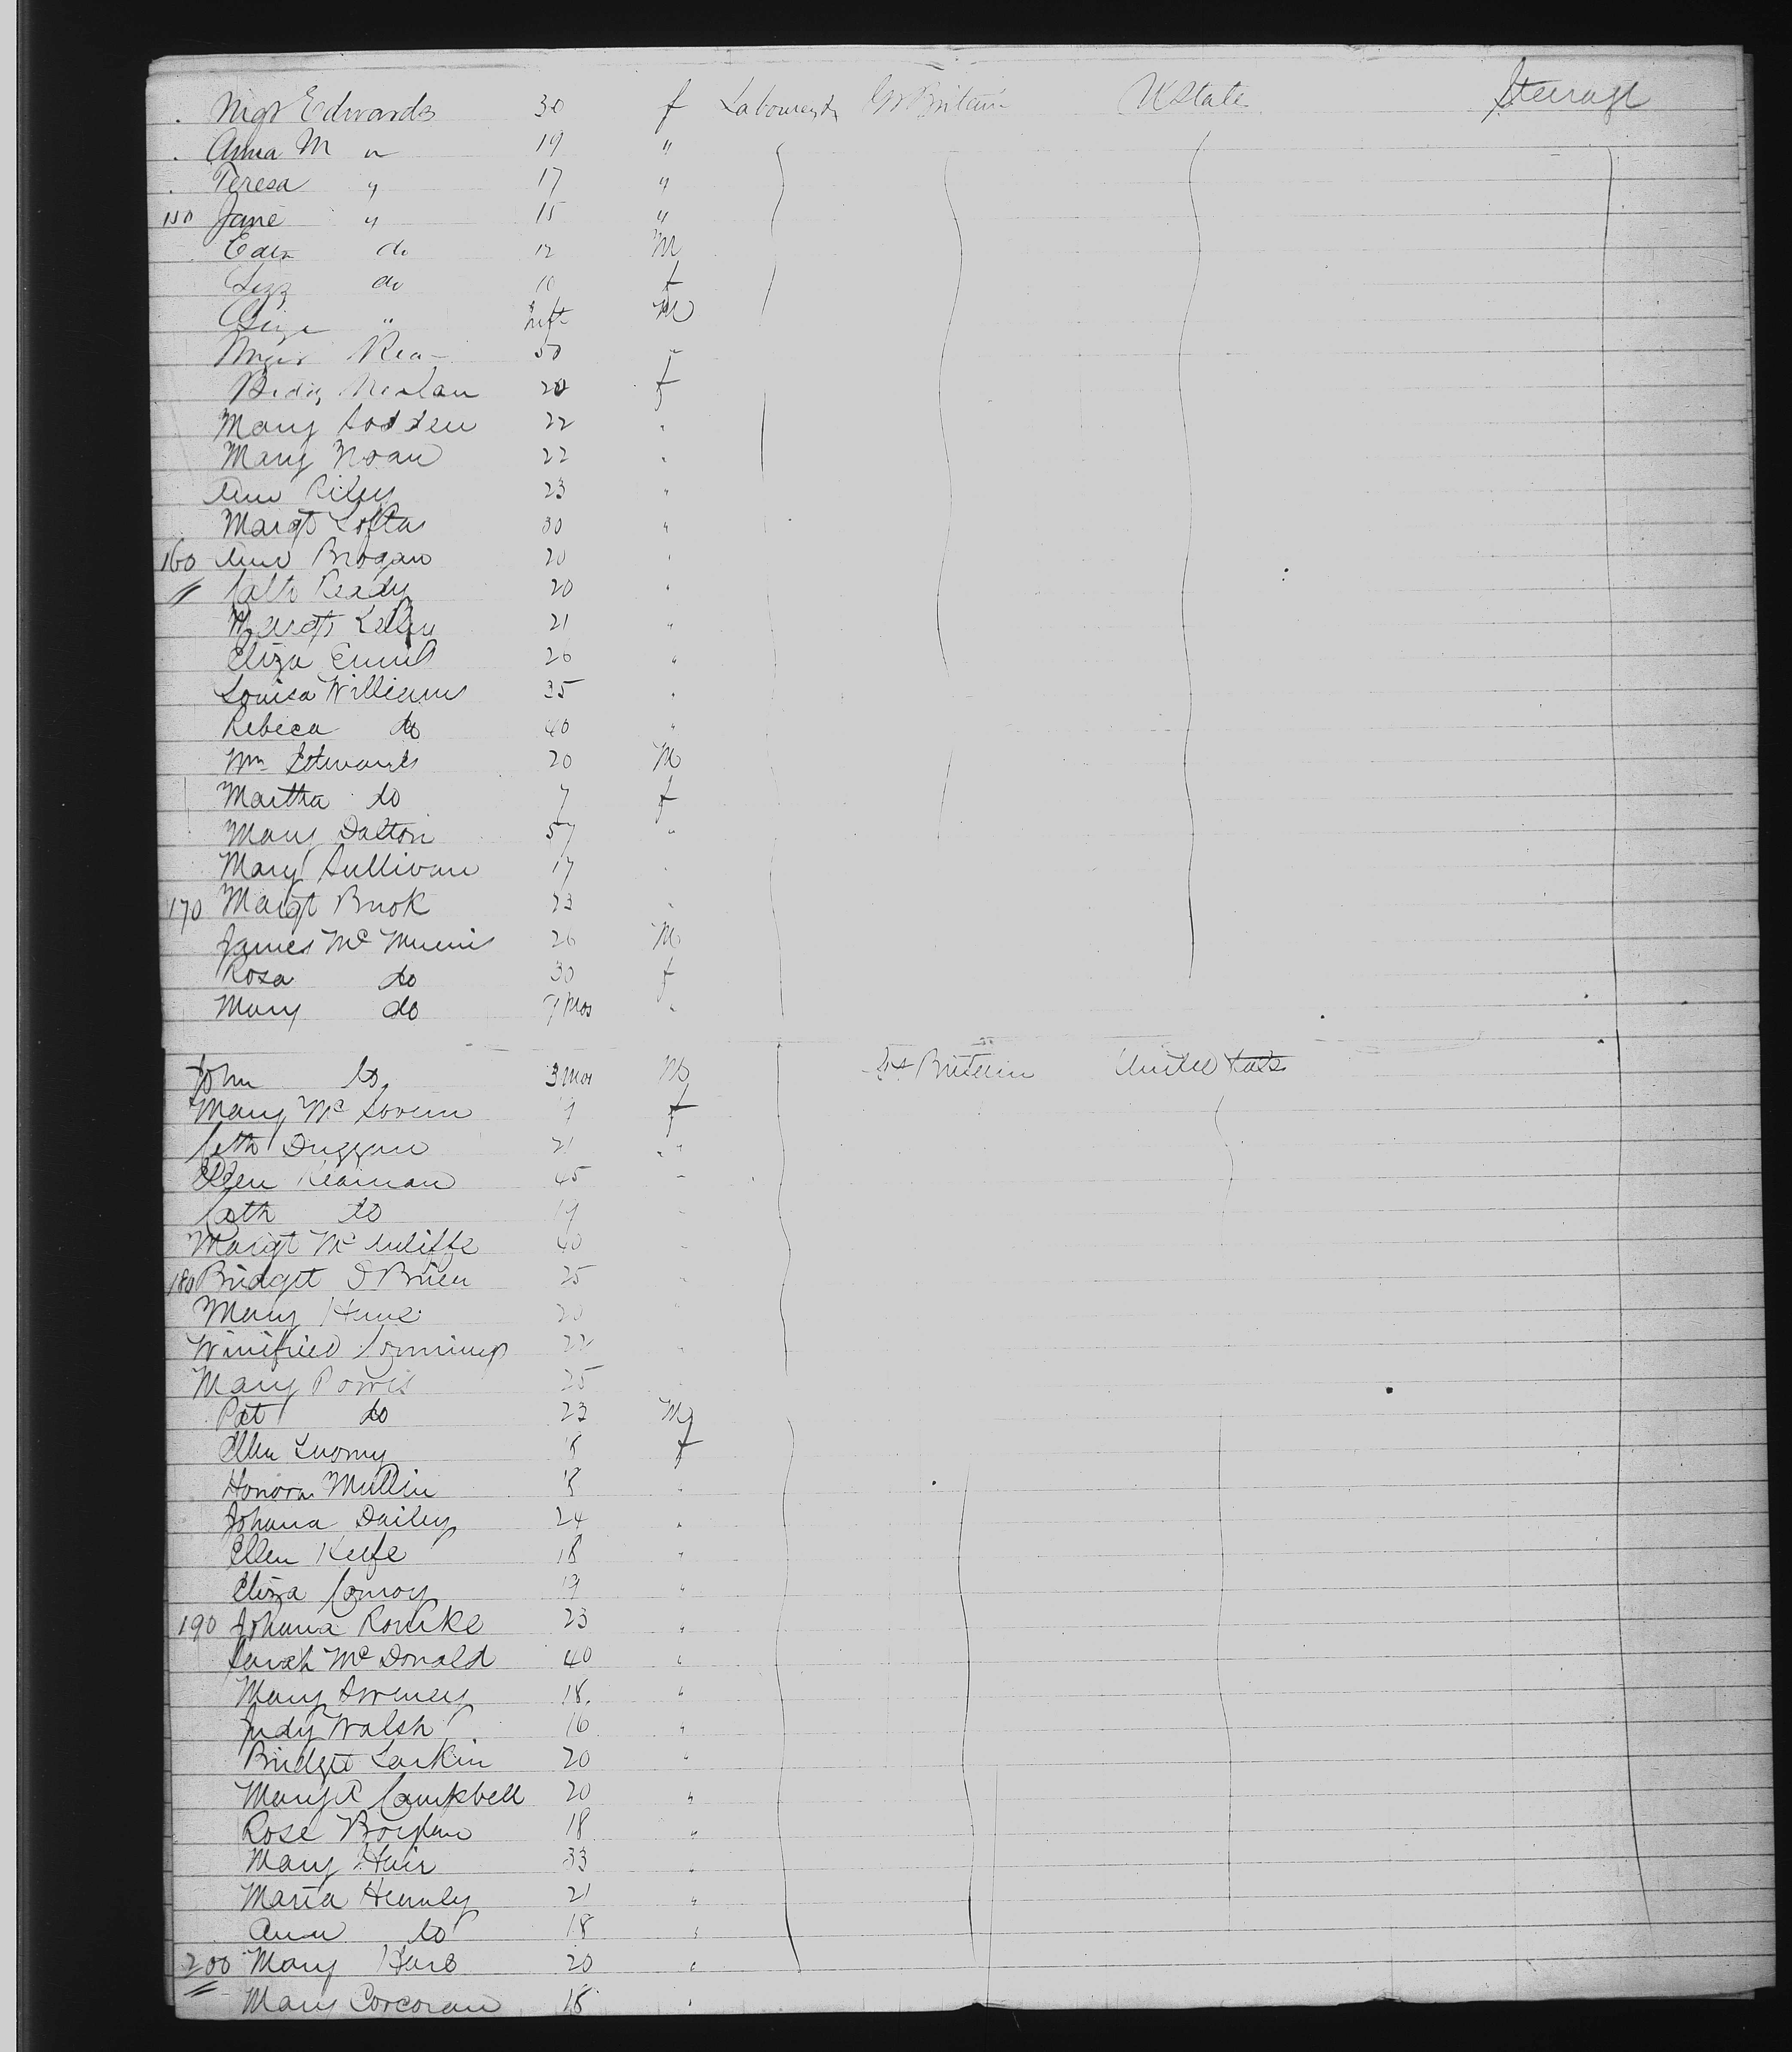 Mgt Edwards 30 f Labourers Gr Britain U State Steerage
Anna M " 19 "
Teresa " 17 "
150 Jane " 15 "
Edw do 12 M
Lizz do 10 f
" Inft M
Rea 50 "
20 f
Mary 22 "
Mary 22 "
Ann Riley 23 "
Margt Loftus 30 "
160 Ann Brogan 20 "
Cath Ready 20 "
Margt 21 "
Eliza 20 "
Louisa Williams 35 "
Rebeca do 40 "
Wm Edwards 20 M
Martha do 7 f
Mary Dalton 57 "
Mary Sullivan 17 "
170 Margt 23 "
James Mc 26 M
Rosa do 30 f
Mary do Mos "
John do 3 Mos M Gt Britain United States
Mary Mc f
Cath Duggan 21 "
Ellen 45 "
Cath do 19 "
Margt McAuliffe 40 "
180 Bridget O Brien 25 "
Mary 20 "
Winifried 22 "
Mary 25
Pat do 23 M
Ellen 18 f
Honora Mullin 18 "
Johana Dailey 24 "
Ellen Keefe 18 "
Eliza Conroy 19 "
190 Johana Rourke 23 "
Sarah McDonald 40 "
Mary Sweney 18. "
Judy Walsh 16 "
Bridget Larkin 20 "
Mary A Campbell 20 "
Rose 18 "
Mary Hair 33 "
Maria 21 "
Ann do 18 "
200 Mary 20 "
Mary Corcoran 18 "